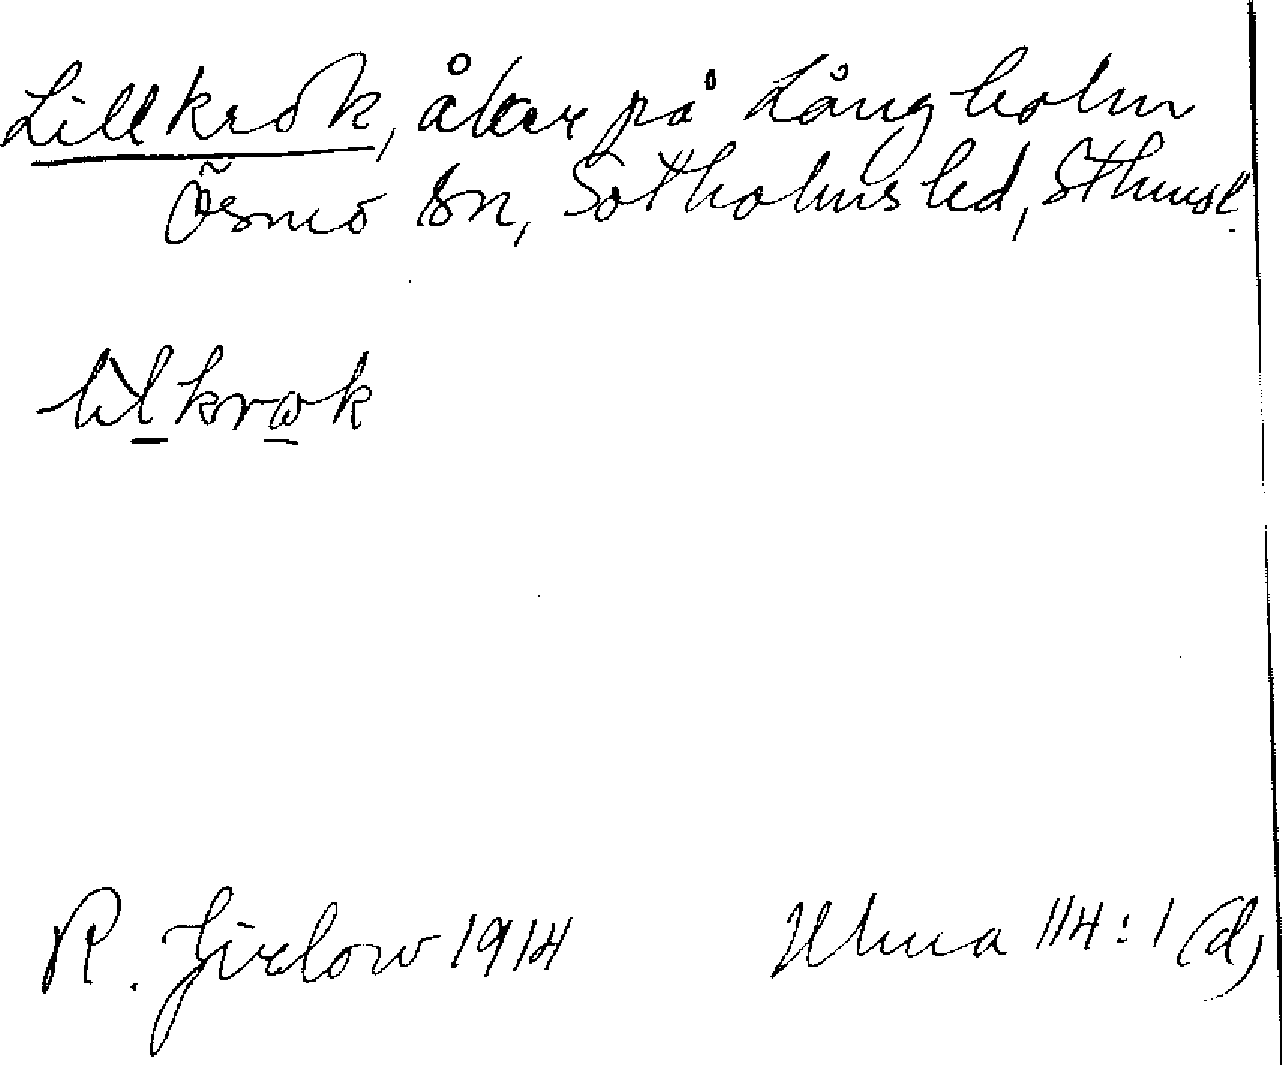 Lillkrok, åker på Långholm
Ösmo sn, Sotholms hd, Sthmsl.
lilkrωk
R. Jirlow 1914 Ulma 114:1 (d)